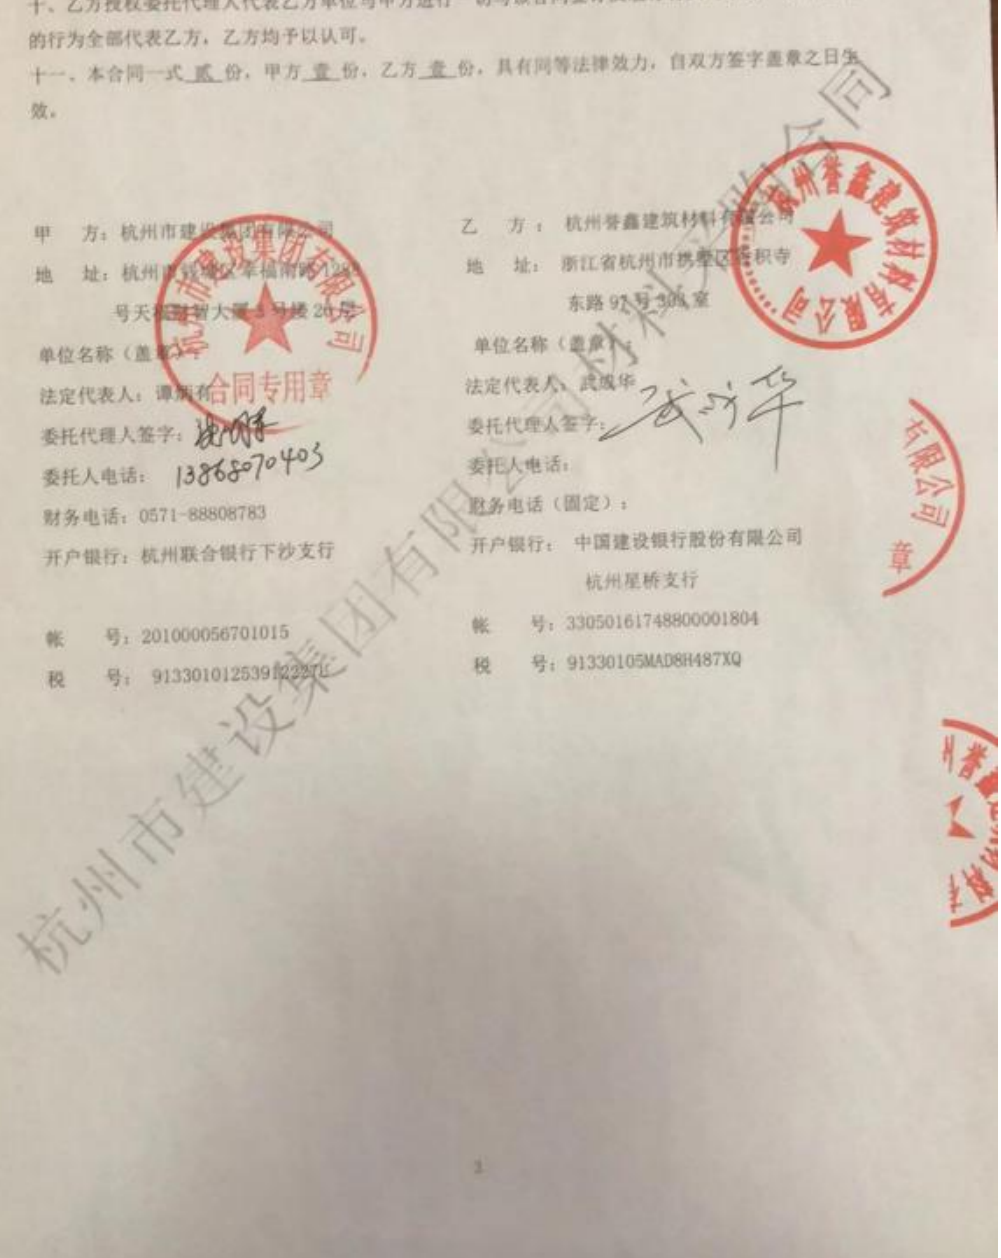 十、乙方授权委托代理人代表乙方单位与甲方进行一切与该合同
的行为全部代表乙方，乙方均予以认可。
十一、本合同一式 贰 份，甲方 壹 份，乙方 壹 份，具有同等法律效力，自双方签字盖章之日生
效。
甲 方：杭州市建设集团有限公司
地 址：杭州市钱塘区幸福南路1288
号天福财智大厦3号楼20层
单位名称（盖章）：
法定代表人：谭炳有
委托代理人签字：
委托人电话：13868070403
财务电话：0571-88808783
开户银行：杭州联合银行下沙支行
帐 号：201000056701015
税 号：
乙 方：杭州誉鑫建筑材料有限公司
地 址：浙江省杭州市拱墅区香积寺
东路97号303室
单位名称（盖章）：
法定代表人：武成华
委托代理人签字：武成华
委托人电话：
财务电话（固定）：
开户银行：中国建设银行股份有限公司
杭州星桥支行
帐 号：33050161748800001804
税 号：91330105MAD8H487XQ
杭州市建设集团有限公司
合同专用章
杭州誉鑫建筑材料有限公司
有限公司
章
州誉鑫建筑材料有
杭州市建设集团有限公司材料采购合同
3